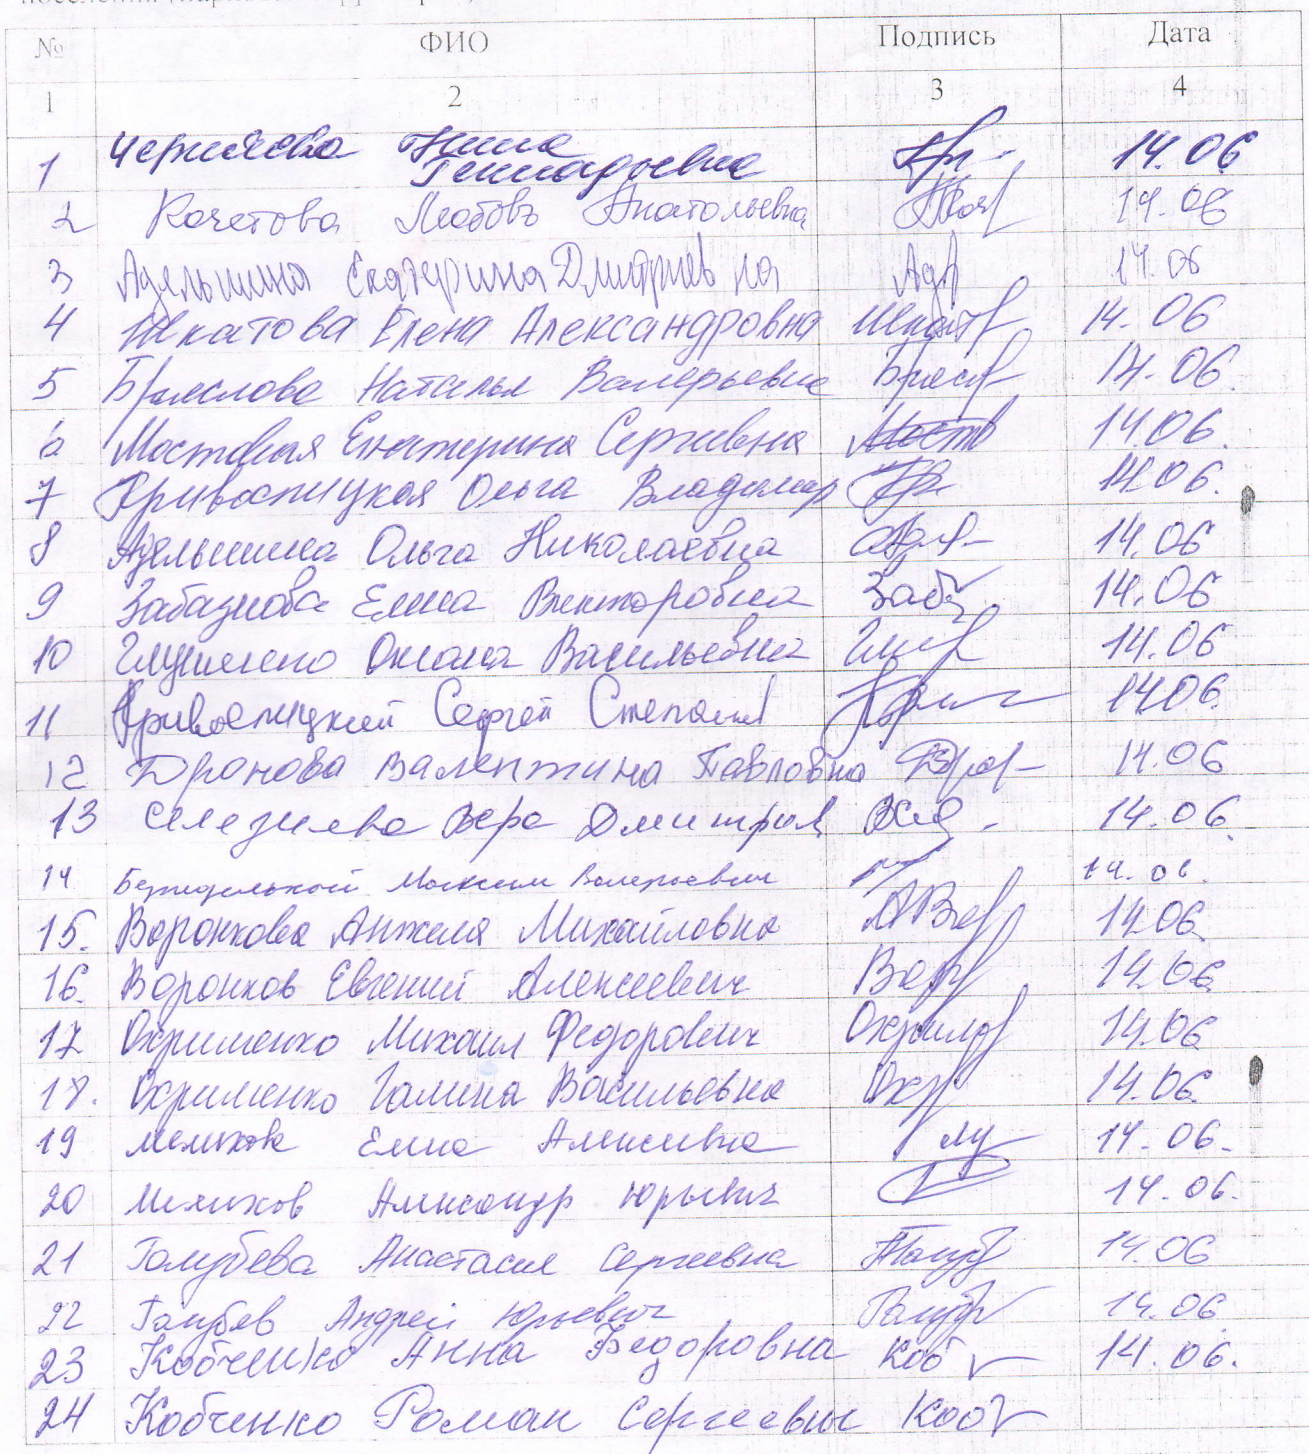 № ФИО Подпись Дата
1 2 3 4
1 Нина 14.06
Геннадьевна
2 Кочетова Любовь Анатольевна 14.06
3 Адельшина Екатерина Дмитриевна Адф 14.06
4 Шкатова Елена Александровна Шкат 14.06
5 Браслова Наталья Валерьевна Брасл 14.06.
6 Мостовая Екатерина Сергеевна Моств 14.06.
7 Кривоспицкая Ольга Владимир 14.06.
8 Адельшина Ольга Николаевна 14.06
9 Забазнова Елена Викторовна Заб 14.06
10 Глущенко Оксана Васильевна 14.06
11 Кривоспицкий Сергей Степанов 14.06.
12 Дронова Валентина Павловна 14.06
13 Селезнева Вера Дмитриев 14.06.
14 Максим Валерьевич 14.06.
15. Воронкова Анжела Михайловна 14.06
16. Воронков Евгений Алексеевич Вор 14.06
17 Охрименко Михаил Федорович Охрим 14.06
18. Охрименко Галина Васильевна Охр 14.06
19 Мелихова Елена Алексеевна 14.06.
20 Мелихов Александр Юрьевич 14.06.
21 Голубева Анастасия Сергеевна 14.06
22 Голубев Андрей Юрьевич Голуб 14.06
23 Кобченко Анна Федоровна Коб 14.06.
24 Кобченко Роман Сергеевич Коб